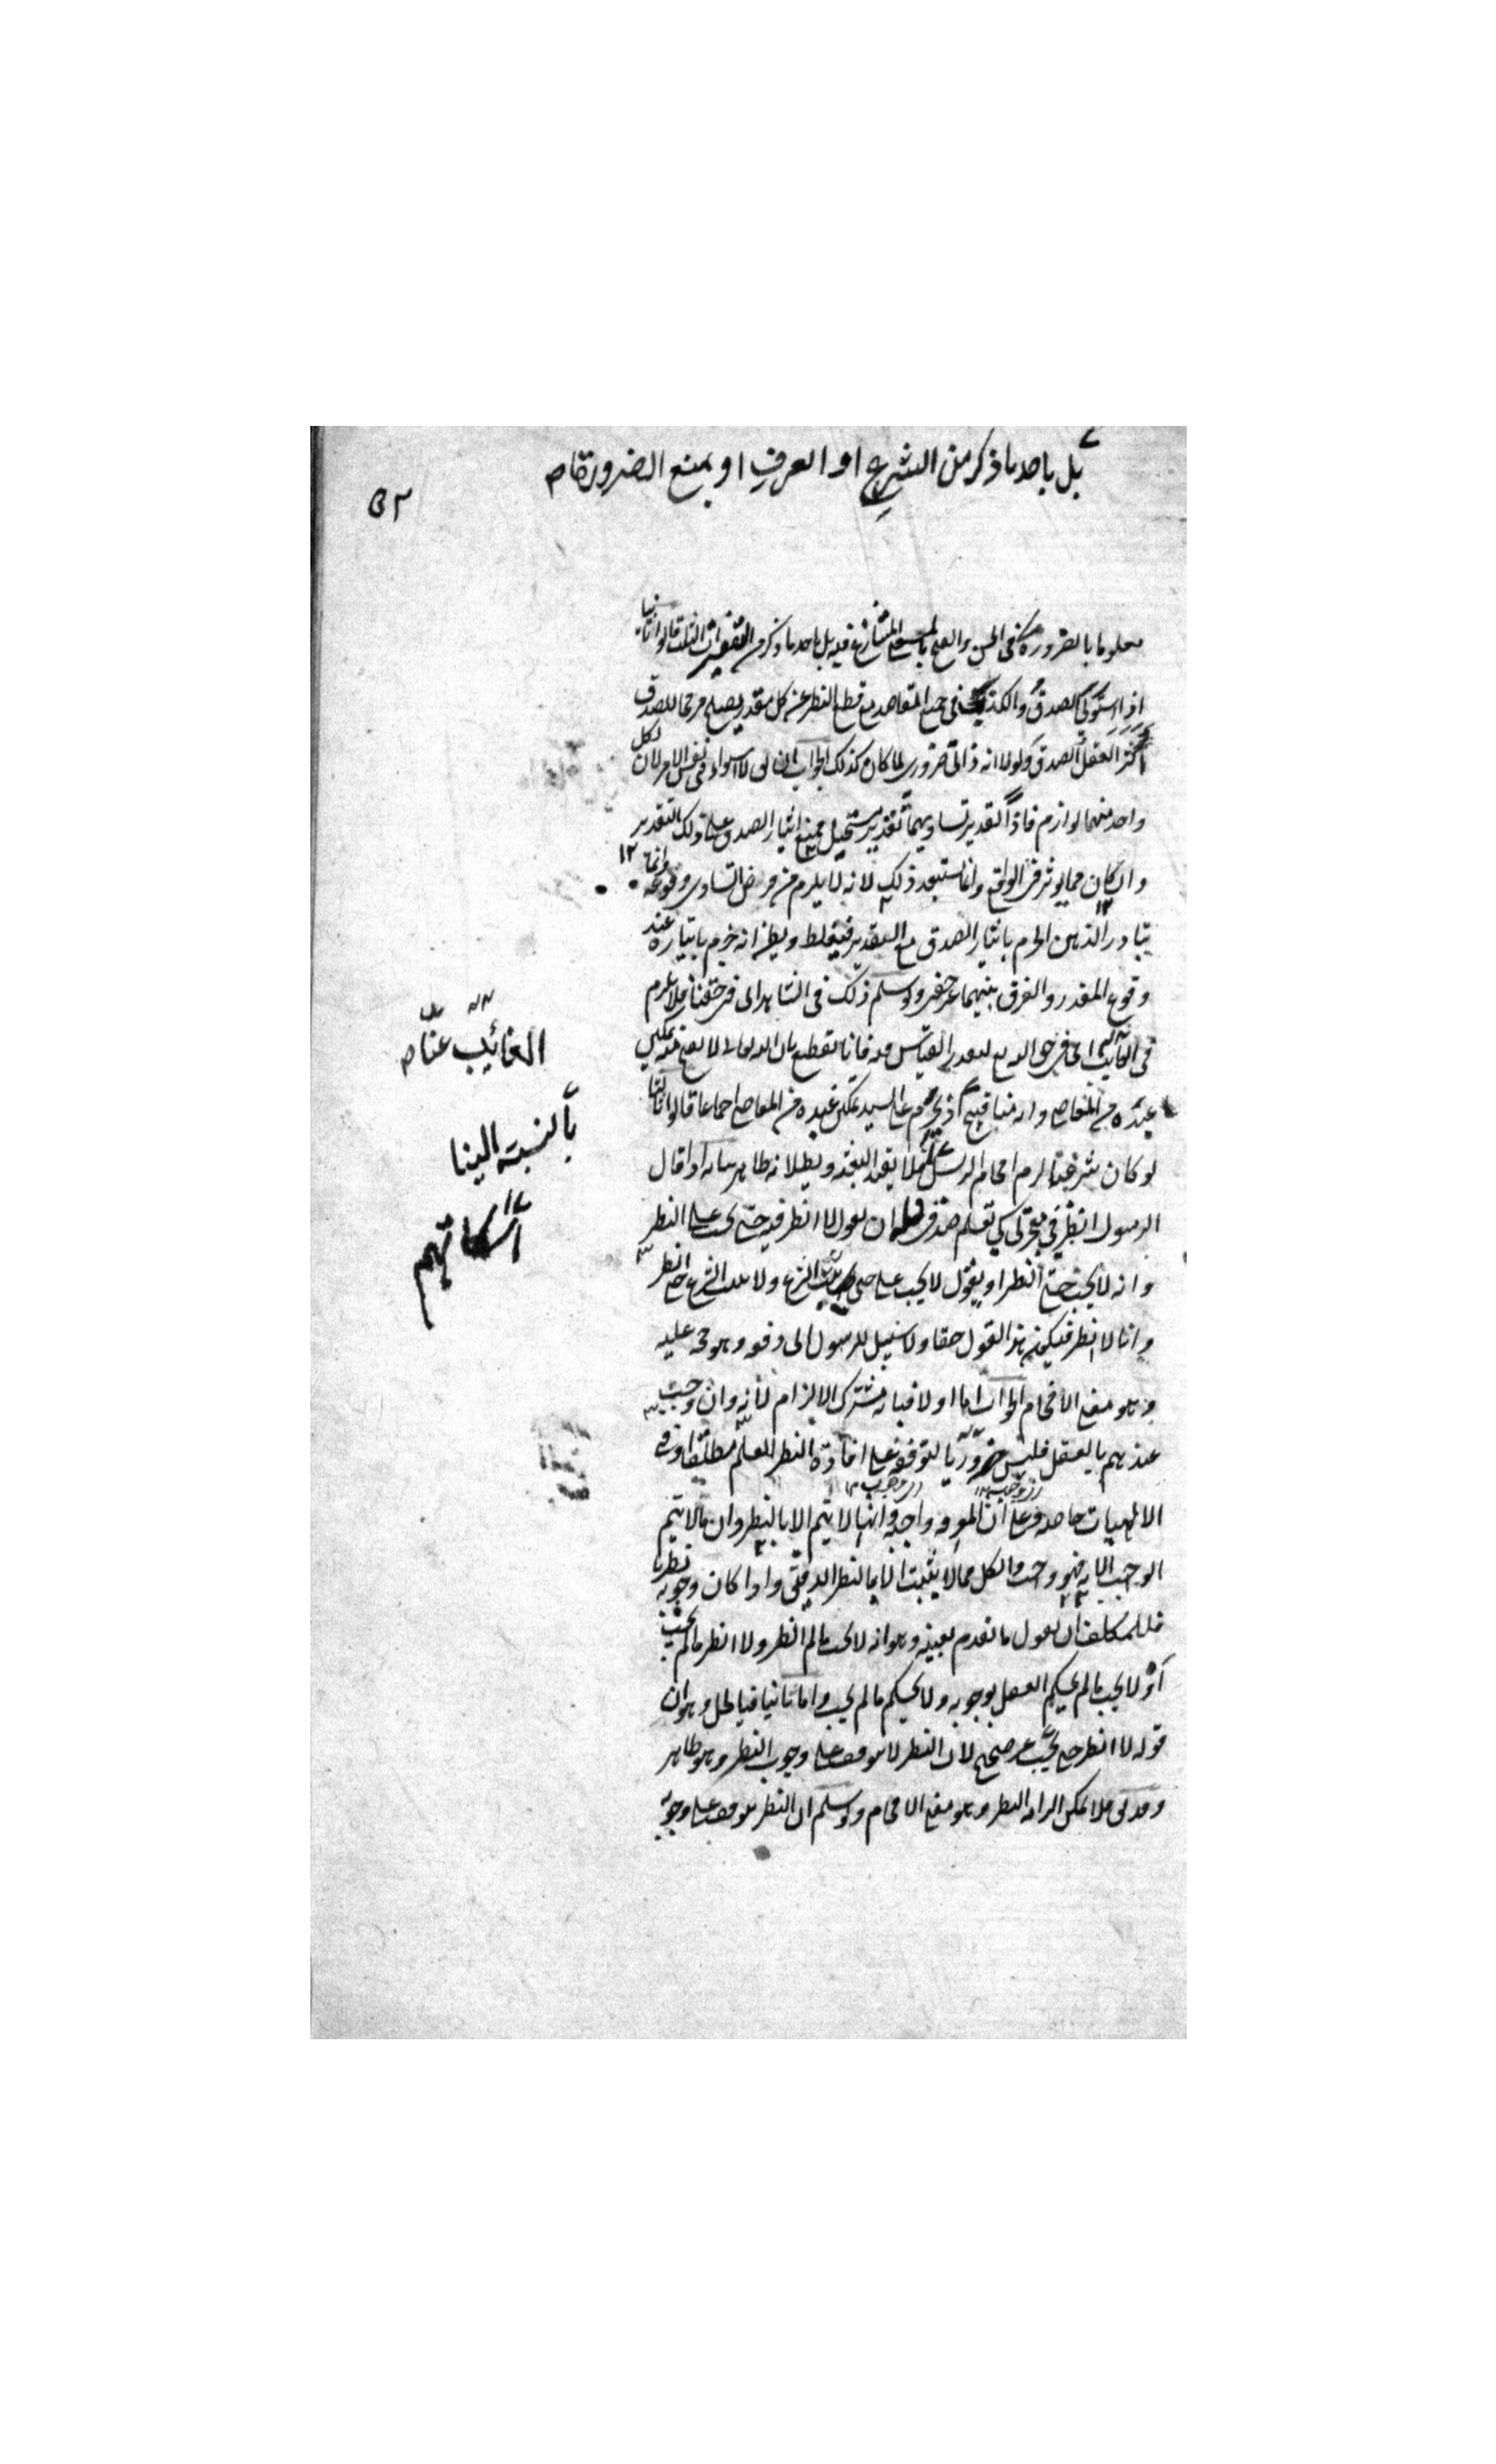 بل باحد ما ذكر من الشرع او العرف او بمنع الضرورة ص
٥٢
معلوما بالضرورة في الحسن والقبح بالمعنى المتنازع فيه بل باحد ما ذكر من التفسيرات الثلث قالوا ثانيا
اذا استوى الصدق والكذب في جميع المقاصد مع قطع النظر عن كل مقدر يصلح مرجحا للصدق
اثر العقل الصدق ولولا انه ذاتي ضروري لما كان كذلك الجواب انه لا استواء في نفس الامر لان لكل
واحد منهما لوازم فاذا تقدير تساويهما تقدير مستحيل فيمنع ايثار الصدق على ذلك التقدير
وان كان مما يؤثر في الواقع وانما يستبعد ذلك لانه لا يلزم من فرض التساوي وقوعه وانما ١٢
يتبادر الذهن الجزم بايثار الصدق مع التقدير فيغلط ويظن انه جزم بايثاره عند
وقوع المقدر والفرق بينهما غير خفي ولو سلم ذلك في الشاهد اي في حقنا فلا يلزم
في الغائب اي في حق الله تعالى لتعذر القياس فيه فانا نقطع بان الله تعالى لا يقبح منه تمكين
عبيده من المعاصي وانه منا قبيح اذ يحرم على السيد تمكين عبده من المعاصي اجماعا قالوا ثالثا
لو كان شرعيا لزم افحام الرسل فلا يفيد البعثة وبطلانه ظاهر بيانه اذا قال
الرسول انظر في معجزتي كي تعلم صدقي فله ان يقول لا انظر فيه حتى يجب علي النظر
وانه لا يجب حتى انظر او يقول لا يجب علي حتى يثبت الشرع ولا يثبت الشرع حتى انظر
وانا لا انظر فيكون هذا القول حقا ولا سبيل للرسول الى دفعه وهو حجة عليه
وهو معنى الافحام الجواب اما اولا فبانه مشترك الالزام لانه وان وجب
عندهم بالعقل فليس ضروريا لتوقفه على افادة النظر للعلم مطلقا وفي
الالهيات خاصة وعلى ان المعرفة واجبة وانها لا يتم الا بالنظر وان ما لا يتم
الوجب الا به فهو واجب والكل مما لا يثبت الا بالنظر الدقيق واذا كان وجوبه نظريا
فللمكلف ان يقول ما تقدم بعينه وهو انه لا يجب ما لم انظر ولا انظر ما لم يجب
او لا يجب ما لم يحكم العقل بوجوبه ولا يحكم ما لم يجب واما ثانيا فبالحل وهو ان
قوله لا انظر حتى يجب غير صحيح لان النظر لا يتوقف على وجوب النظر وهو ظاهر
وقد لا يمكن الزامه النظر وهو معنى الافحام ولو سلم ان النظر يتوقف على وجوبه
الغائب عنا ص
بالنسبة الينا
اسكاتهم